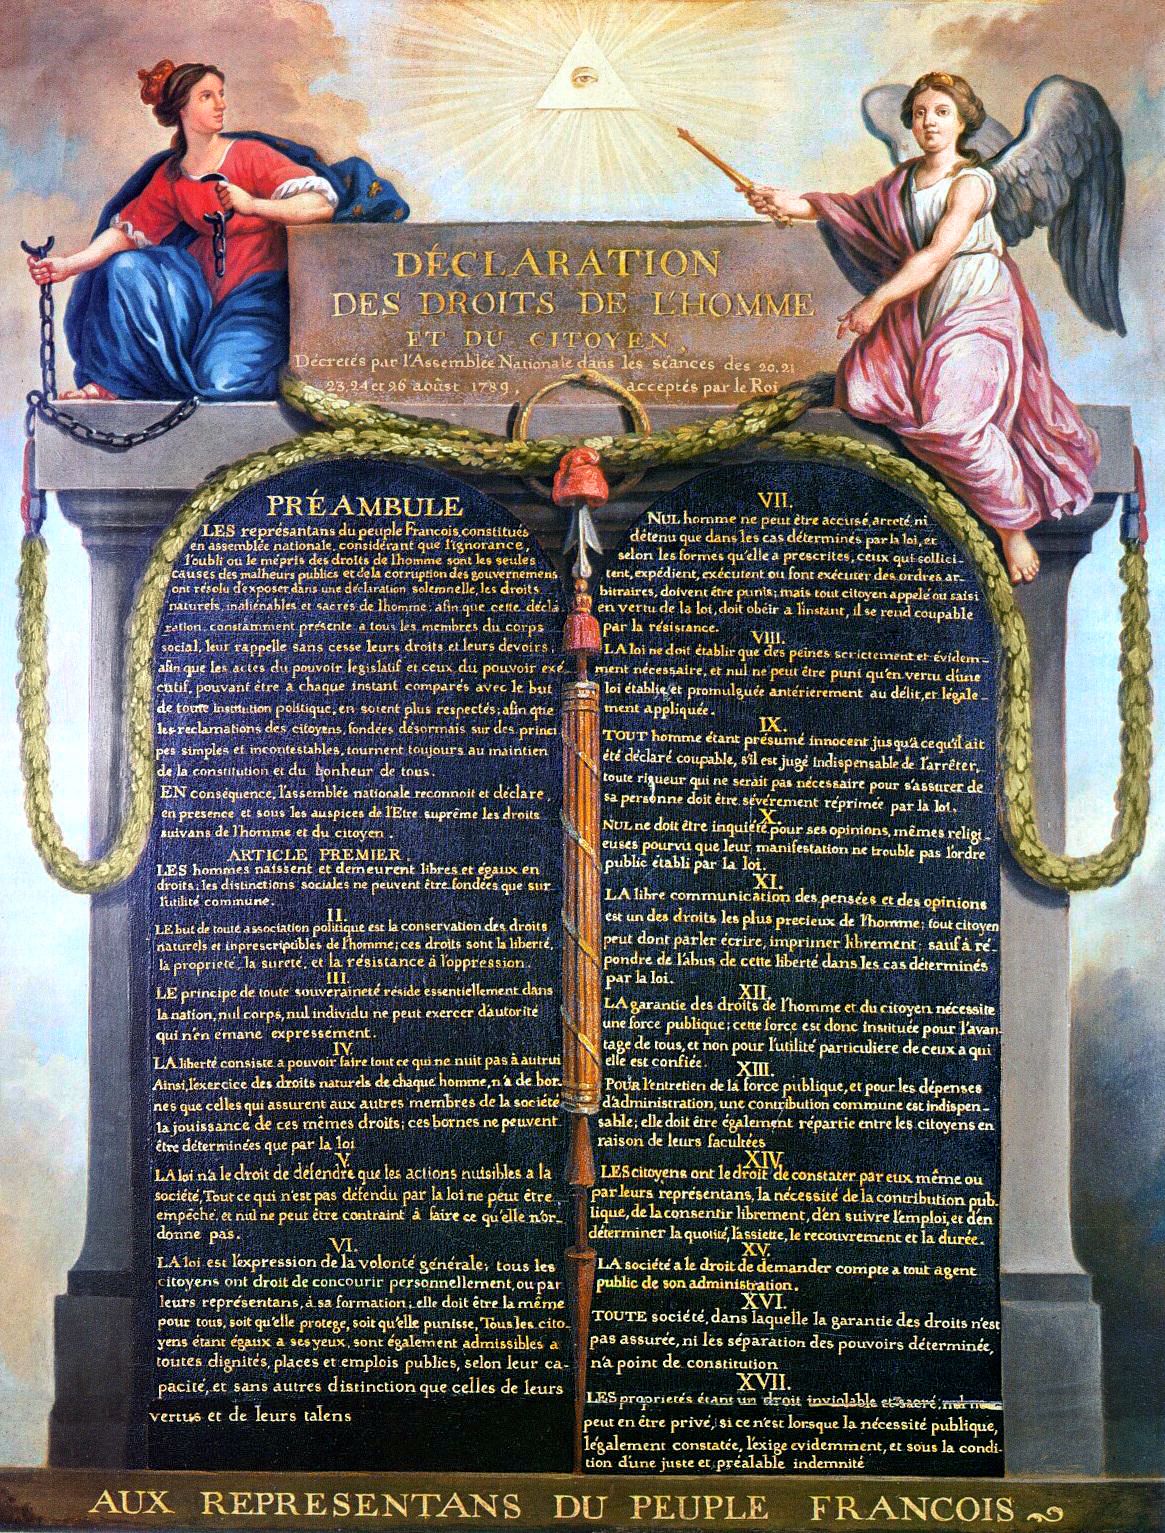 DÉCLARATION
DES DROITS DE L'HOMME
ET DU CITOYEN,
Décretés par l'Assemblée Nationale dans les séances des 20, 21
23, 24 et 26 août 1789, acceptés par le Roi
PRÉAMBULE
LES représantans du peuple Francois, constitués
en assemblée nationale, considérant que l'ignorance,
l'oubli ou le mépris des droits de l'homme sont les seules
causes des malheurs publics et de la corruption des gouvernemens
ont résolu d'exposer dans une déclaration solemnelle, les droits
naturels, inaliénables et sacrés de l'homme; afin que cette décla
ration, constamment présente a tous les membres du corps
social, leur rappelle sans cesse leurs droits et leurs devoirs;
afin que les actes du pouvoir legislatif et ceux du pouvoir exé
cutif, pouvant être a chaque instant comparés avec le but
de toute institution politique, en soient plus respectés; afin que
les reclamations des citoyens, fondées désormais sur des princi
pes simples et incontestables, tournent toujours au maintien
de la constitution et du bonheur de tous.
EN conséquence, l'assemblée nationale reconnoit et déclare,
en presence et sous les auspices de l'Etre suprême les droits
suivans de l'homme et du citoyen.
ARTICLE PREMIER.
LES hommes naissent et demeurent libres et égaux en
droits; les distinctions sociales ne peuvent être fondées que sur
l'utilité commune.
II.
LE but de toute association politique est la conservation des droits
naturels et inprescriptibles de l'homme; ces droits sont la liberté,
la propriete, la sureté, et la résistance à l'oppression.
III.
LE principe de toute souveraineté réside essentiellement dans
la nation, nul corps, nul individu ne peut exercer d'autorité
qui n'en emane expressement.
IV.
LA liberté consiste a pouvoir faire tout ce qui ne nuit pas à autrui
Ainsi, l'exercice des droits naturels de chaque homme, n'a de bor-
nes que celles qui assurent aux autres membres de la société
la jouissance de ces mêmes droits; ces bornes ne peuvent
être déterminées que par la loi
V.
LA loi n'a le droit de défendre que les actions nuisibles a la
société, Tout ce qui n'est pas défendu par la loi ne peut être
empêché, et nul ne peut être contraint à faire ce qu'elle n'or-
donne pas.
VI.
LA loi est l'expression de la volonté générale; tous les
citoyens ont droit de concourir personnellement, ou par
leurs représentans, à sa formation; elle doit être la même
pour tous, soit qu'elle protege, soit qu'elle punisse, Tous les cito-
yens étant égaux a ses yeux, sont également admissibles a
toutes dignités, places et emplois publics, selon leur ca-
pacité, et sans autres distinction que celles de leurs
vertus et de leurs talens
VII.
NUL homme ne peut être accusé, arreté, ni
détenu que dans les cas déterminés par la loi, et
selon les formes qu'elle a prescrites, ceux qui sollici-
tent, expédient, exécutent ou font exécuter des ordres ar-
bitraires, doivent être punis; mais tout citoyen appelé ou saisi
en vertu de la loi, doit obéir a l'instant, il se rend coupable
par la résistance.
VIII.
LA loi ne doit établir que des peines strictement et évidem-
ment nécessaire, et nul ne peut être puni qu'en vertu d'une
loi établie, et promulguée antérierement au délit, et légale-
ment appliquée.
IX.
TOUT homme étant présumé innocent jusqu'a ce qu'il ait
été déclaré coupable, s'il est jugé indispensable de l'arrêter,
toute rigueur qui ne serait pas nécessaire pour s'assurer de
sa personne doit être sévérement réprimée par la loi.
X.
NUL ne doit être inquiété pour ses opinions, mêmes religi-
euses pourvu que leur manifestation ne trouble pas l'ordre
public établi par la loi.
XI.
LA libre communication des pensées et des opinions
est un des droits les plus precieux de l'homme; tout citoyen
peut dont parler écrire, imprimer librement; sauf à ré-
pondre de l'abus de cette liberté dans les cas déterminés
par la loi.
XII.
LA garantie des droits de l'homme et du citoyen nécessite
une force publique; cette force est donc instituée pour l'avan-
tage de tous, et non pour l'utilité particuliere de ceux a qui
elle est confiée.
XIII.
POUR l'entretien de la force publique, et pour les dépenses
d'administration, une contribution commune est indispen-
sable; elle doit être également répartie entre les citoyens en
raison de leurs facultées
XIV.
LES citoyens ont le droit de constater par eux même ou
par leurs représentans, la nécessité de la contribution pub-
lique, de la consentir librement, d'en suivre l'emploi, et d'en
déterminer la quotité, l'assiette, le recouvrement et la durée.
XV.
LA société a le droit de demander compte a tout agent
public de son administration.
XVI.
TOUTE société, dans laquelle la garantie des droits n'est
pas assurée, ni les séparation des pouvoirs déterminée,
n'a point de constitution
XVII.
LES proprietés étant un droit inviolable et sacré, nul ne
peut en être privé, si ce n'est lorsque la nécessité publique,
légalement constatée, l'exige evidemment, et sous la condi-
tion d'une juste et préalable indemnité
AUX REPRESENTANS DU PEUPLE FRANCOIS